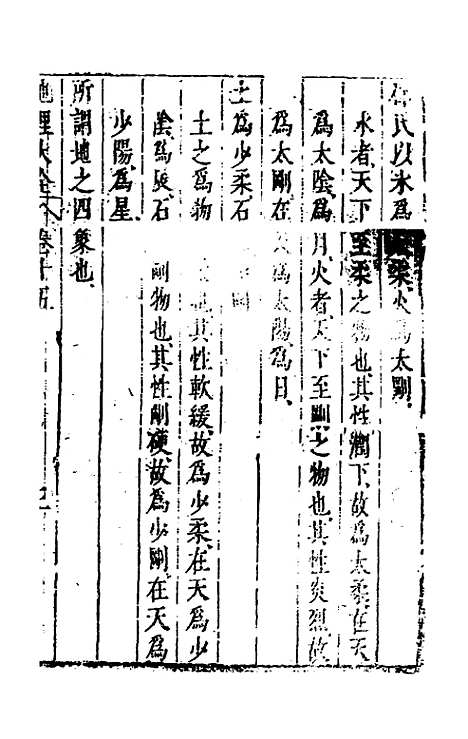 氏以水爲太柔火爲太剛
水者天下至柔之物也其性潤下故爲太柔在天
爲太陰爲月火者天下至剛之物也其性炎烈故
爲太剛在天爲太陽爲日
土爲少柔石
土之爲物也其性軟緩故爲少柔在天爲少
陰爲辰石剛物也其性剛硬故爲少剛在天爲
少陽爲星
所謂地之四象也
地理大全卷十五